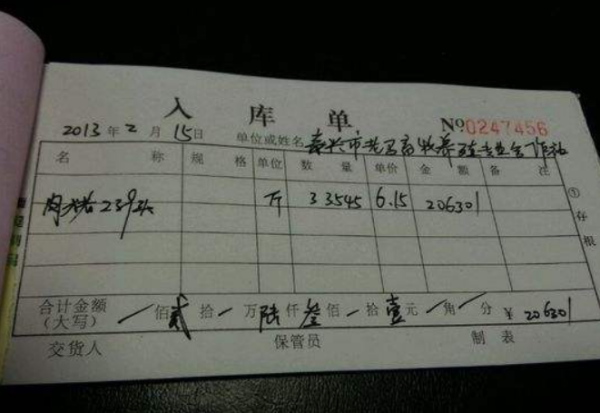 入库单
№0247456
2013年2月15日 单位或姓名 嘉兴市
名称 规格 单位 数量 单价 金额 备注
239头 斤 33545 6.15 206301
①存根
合计金额(大写) / 佰贰拾 / 万陆仟叁佰 / 拾壹元 / 角 / 分 ¥ 206301
交货人 保管员 制表